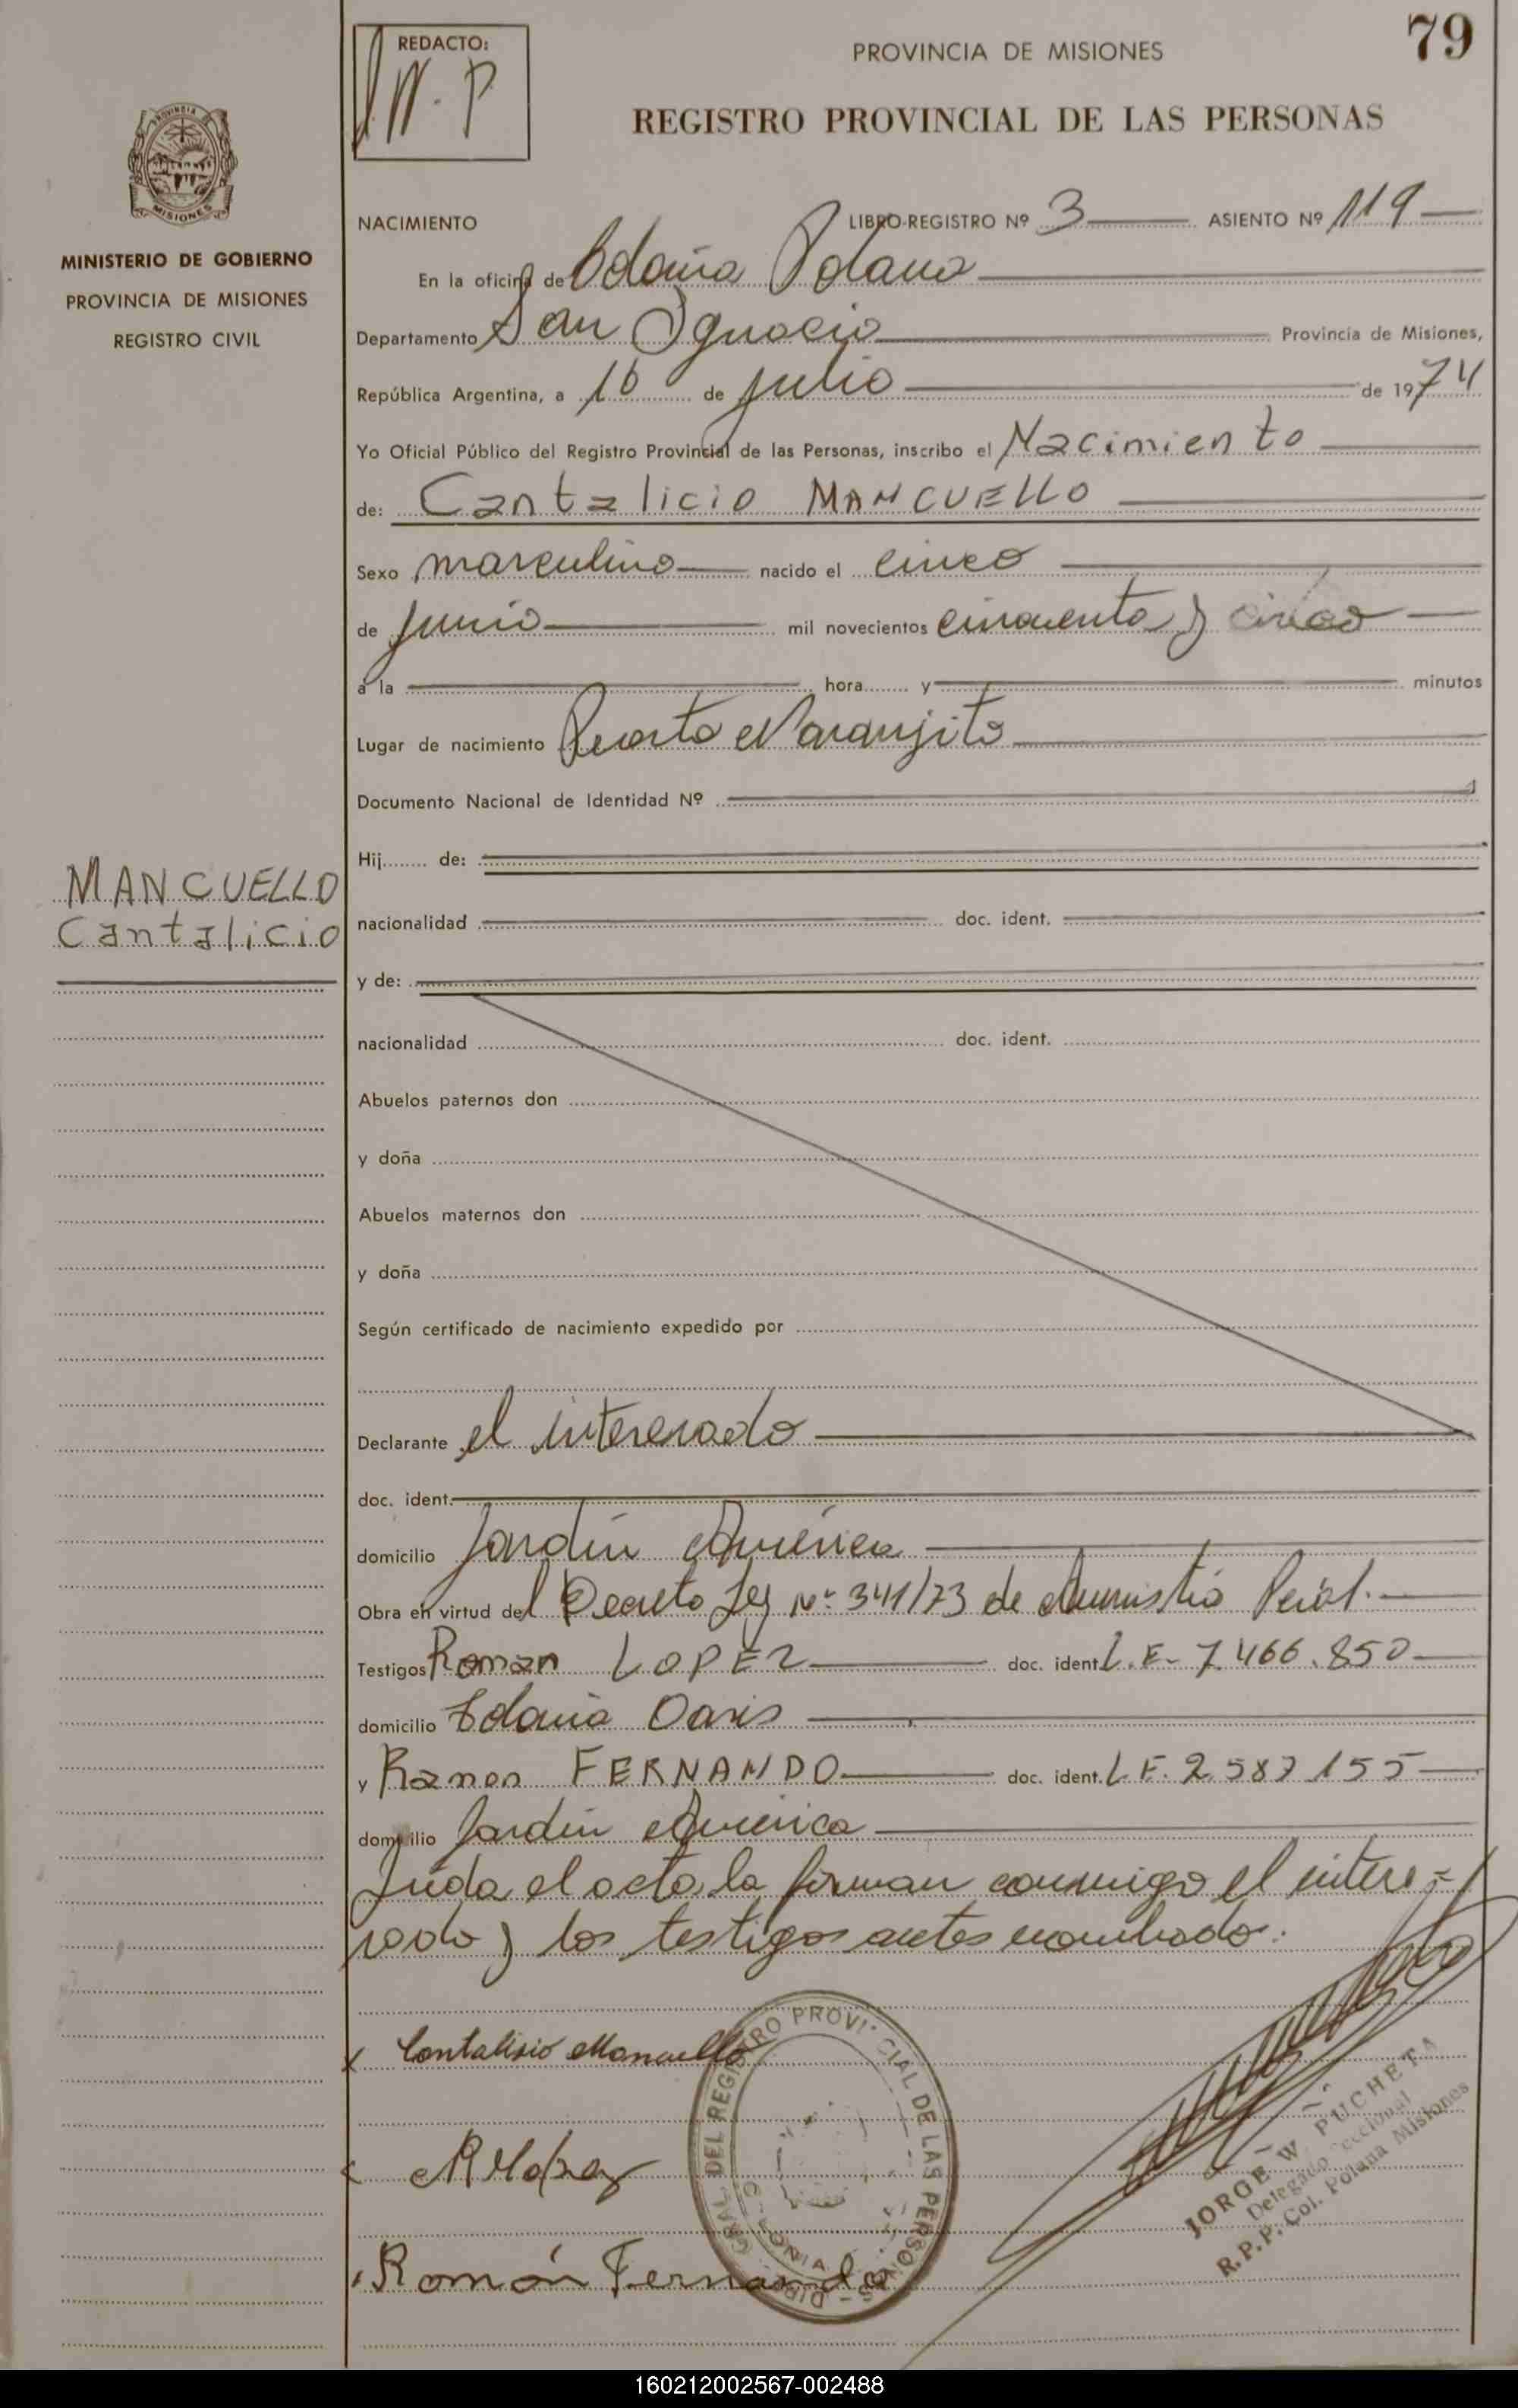 79
REDACTO:
W.P
PROVINCIA DE MISIONES
REGISTRO PROVINCIAL DE LAS PERSONAS
PROVINCIA DE
MISIONES
MINISTERIO DE GOBIERNO
PROVINCIA DE MISIONES
REGISTRO CIVIL
NACIMIENTO LIBRO-REGISTRO Nº 3 ASIENTO Nº 119
En la oficina de Colonia Polana
Departamento San Ignacio Provincia de Misiones,
República Argentina, a 16 de julio de 1974
Yo Oficial Público del Registro Provincial de las Personas, inscribo el Nacimiento
de: Cantalicio MANCUELLO
Sexo masculino nacido el cinco
de junio mil novecientos cincuenta y cinco
a la hora y minutos
Lugar de nacimiento Puerto Naranjito
Documento Nacional de Identidad Nº
MANCUELLO
Cantalicio
Hij de:
nacionalidad doc. ident.
y de:
nacionalidad doc. ident.
Abuelos paternos don
y doña
Abuelos maternos don
y doña
Según certificado de nacimiento expedido por
Declarante el interesado
doc. ident.
domicilio Jardín América
Obra en virtud del Decreto Ley Nº 341/73 de Amnistía
Testigos Roman LOPEZ doc. ident. L.E. 7.466.850
domicilio Colonia Oasis
y Ramon FERNANDO doc. ident. L.E. 2.587.155
domicilio Jardín América
leída el acta la firman conmigo el intere-
sado y los testigos antes nombrado.
x Cantalisio Mancuello
Román Fernando
DIRC. GRAL. DEL REGISTRO PROVINCIAL DE LAS PERSONAS
COLONIA
JORGE W PUCHETA
Delegado Seccional
R.P.P. Col. Polana Misiones
160212002567-002488